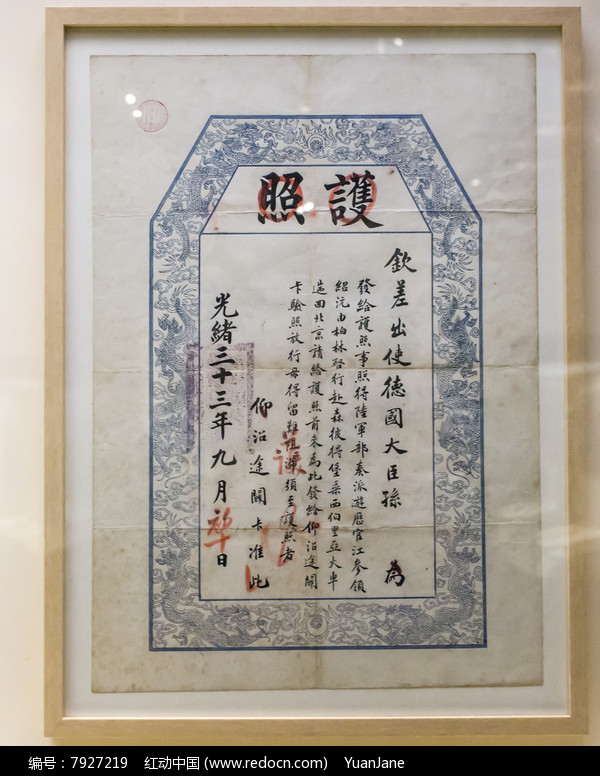 護照
欽差出使德國大臣孫 為
發給護照事照得陸軍部奏派遊歷官江參領
紹沅由柏林啓行赴森彼得堡乘西伯里亞火車
遄回北京請給護照前來為此發給仰沿途關
卡驗照放行毋得留難阻滯須至護照者
仰沿途關卡准此
光緒三十三年九月 日
编号：7927219 红动中国 (www.redocn.com) YuanJane